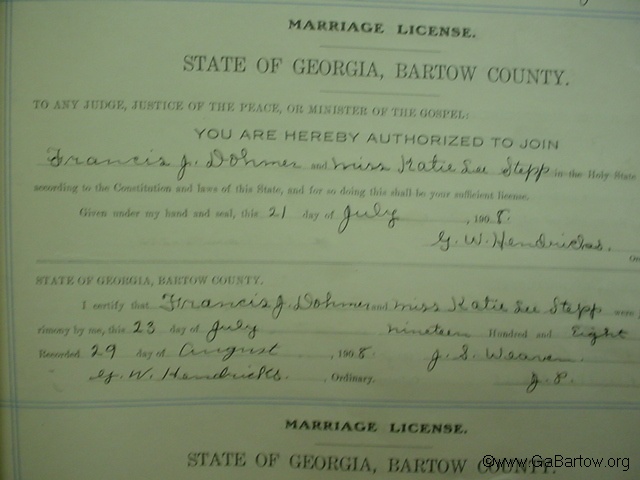 MARRIAGE LICENSE.
STATE OF GEORGIA, BARTOW COUNTY.
TO ANY JUDGE, JUSTICE OF THE PEACE, OR MINISTER OF THE GOSPEL:
YOU ARE HEREBY AUTHORIZED TO JOIN
Francis J. Dohmer and Miss Katie Lee Stepp in the Holy State
according to the Constitution and laws of this State, and for so doing this shall be your sufficient license.
Given under my hand and seal, this 21 day of July, 1908.
G. W. Hendricks.
STATE OF GEORGIA, BARTOW COUNTY.
I certify that Francis J. Dohmer and Miss Katie Lee Stepp were
rimony by me, this 23 day of July nineteen Hundred and Eight
Recorded 29 day of August, 1908. J. S. Weaver.
G. W. Hendricks., Ordinary. J. P.
MARRIAGE LICENSE.
STATE OF GEORGIA, BARTOW COUNTY.
©www.GaBartow.org